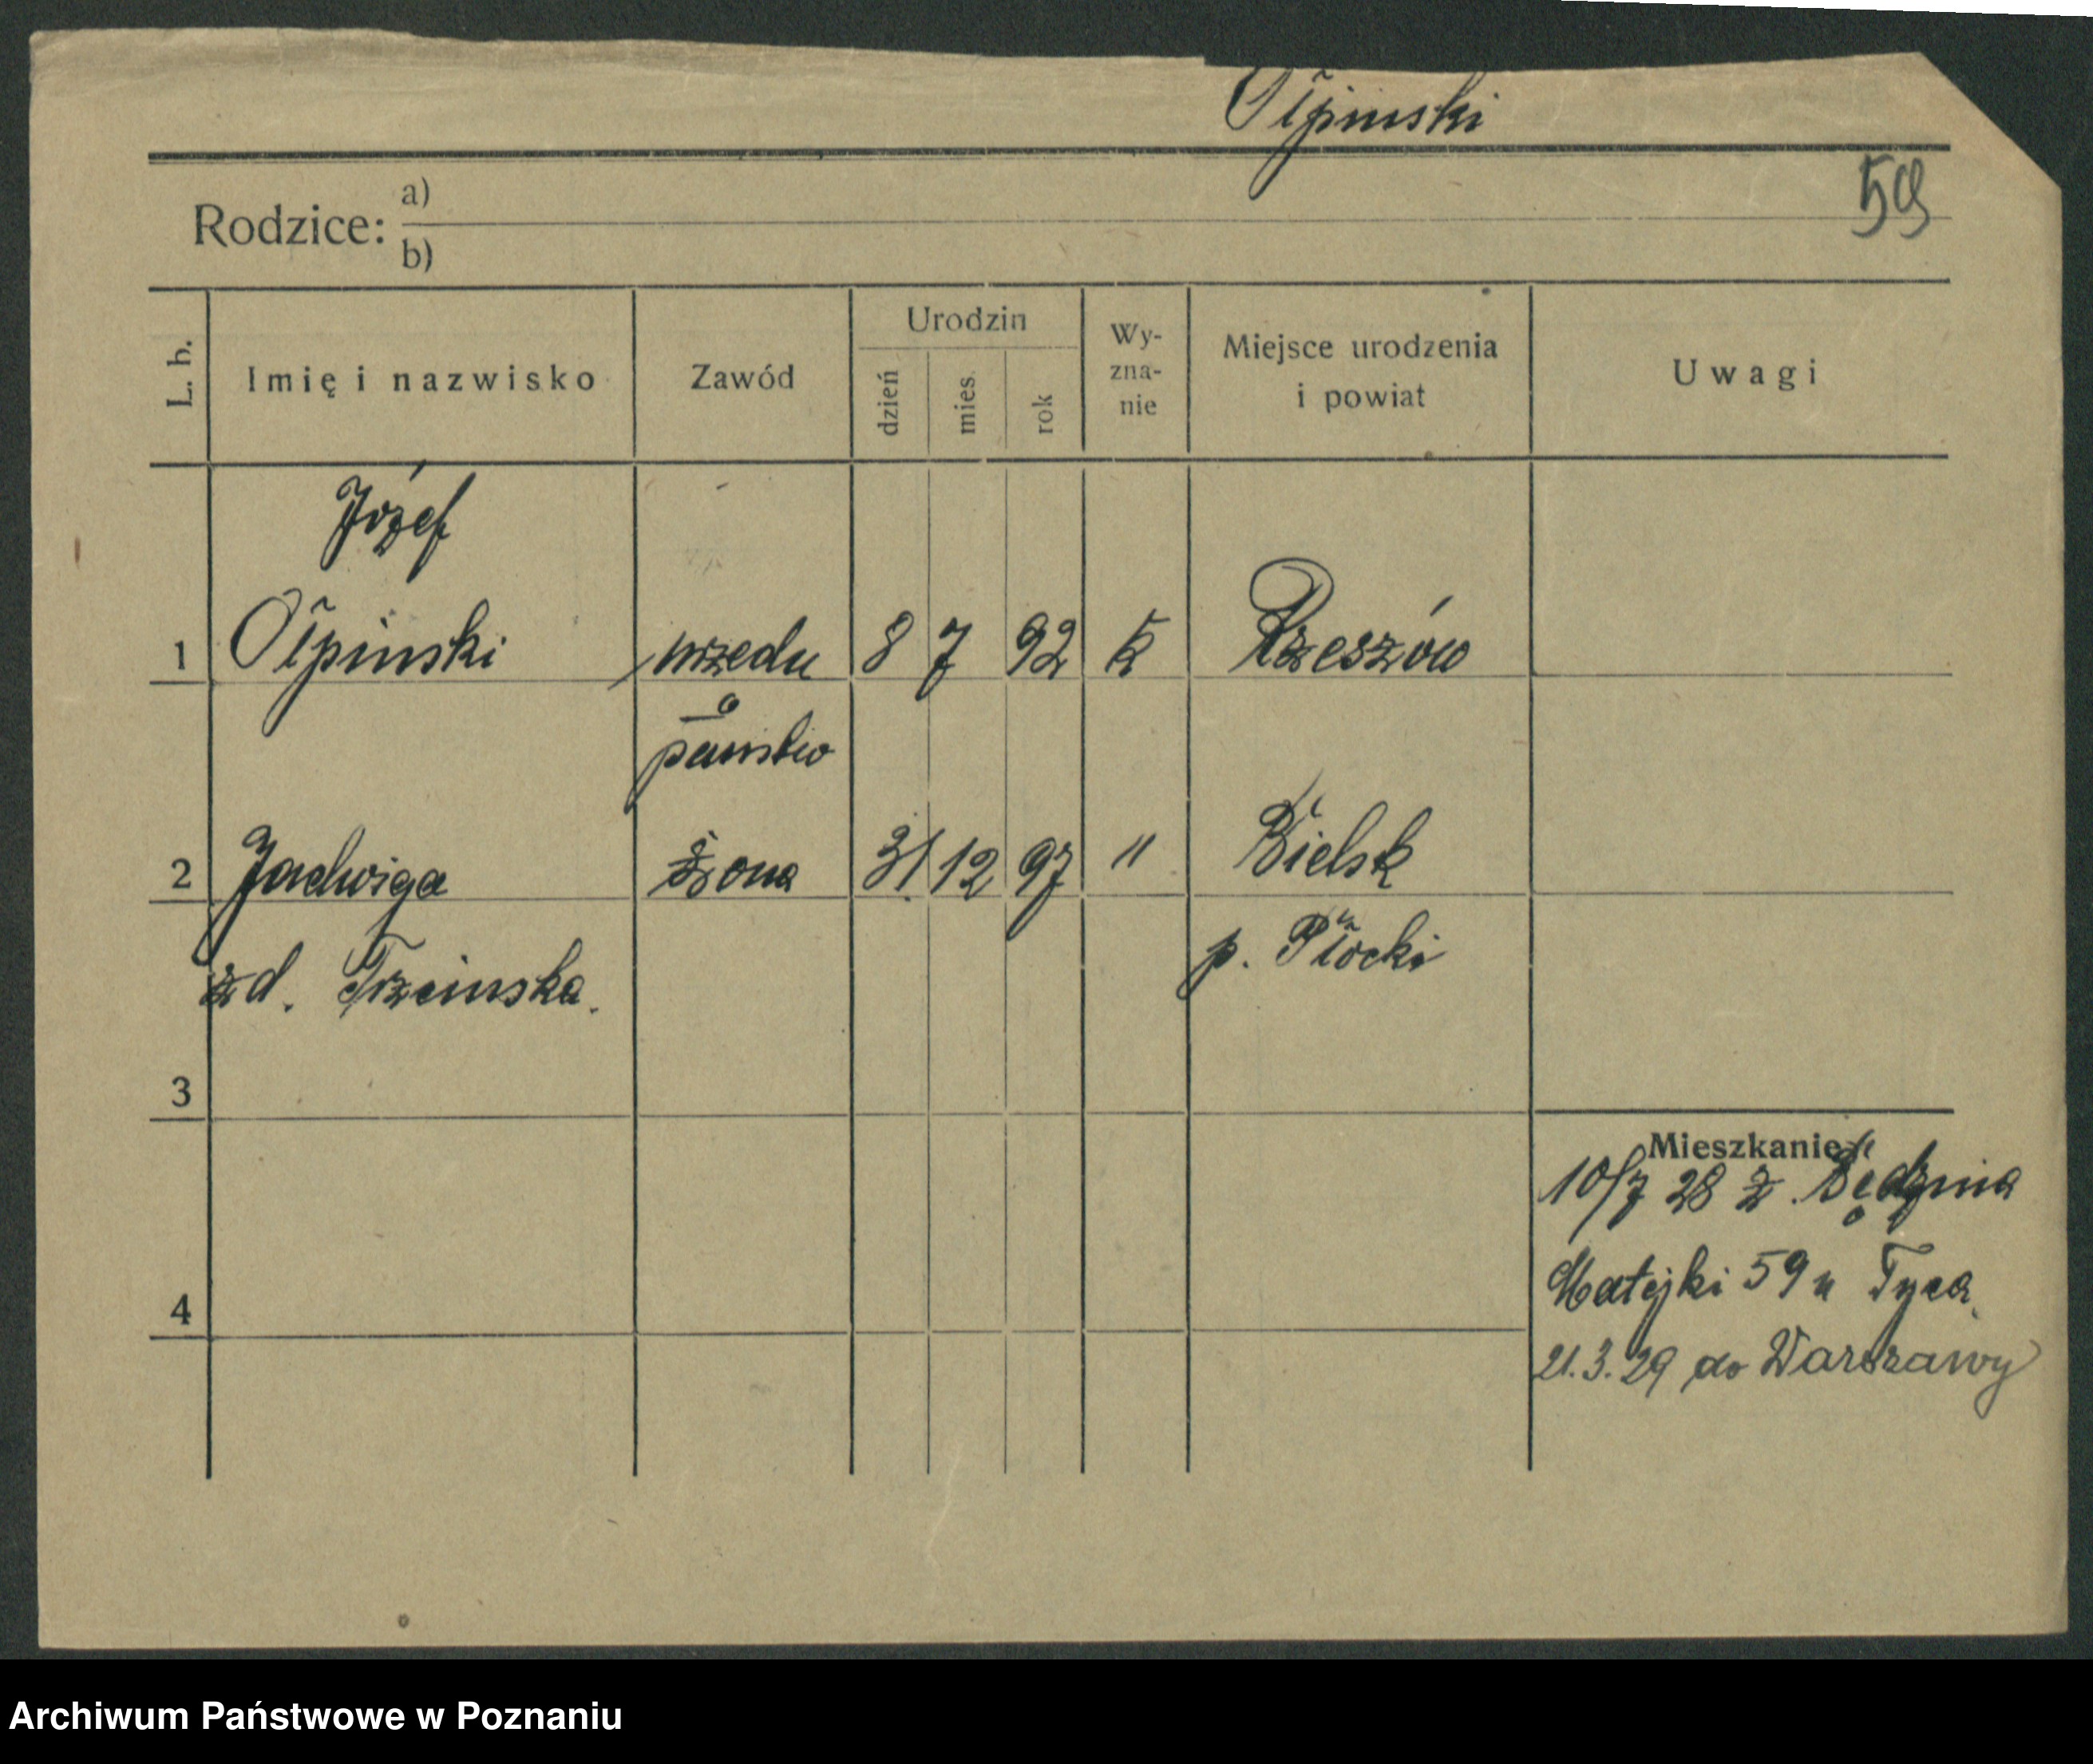 Ołpinski
59
Rodzice: a)
b)
L. b.
Imię i nazwisko
Zawód
Urodzin
dzień
mies.
rok
Wy-
zna-
nie
Miejsce urodzenia
i powiat
Uwagi
Józef
1 Ołpinski urzedu 8 7 92 k Rzeszów
państw
2 Jadwiga żona 31 12 97 " Bielsk
zd. Trzcinska. p. Płocki
3
Mieszkanie
10/7 28 z Będzina
Matejki 59 u
4
21.3.29 do Warszawy
Archiwum Państwowe w Poznaniu